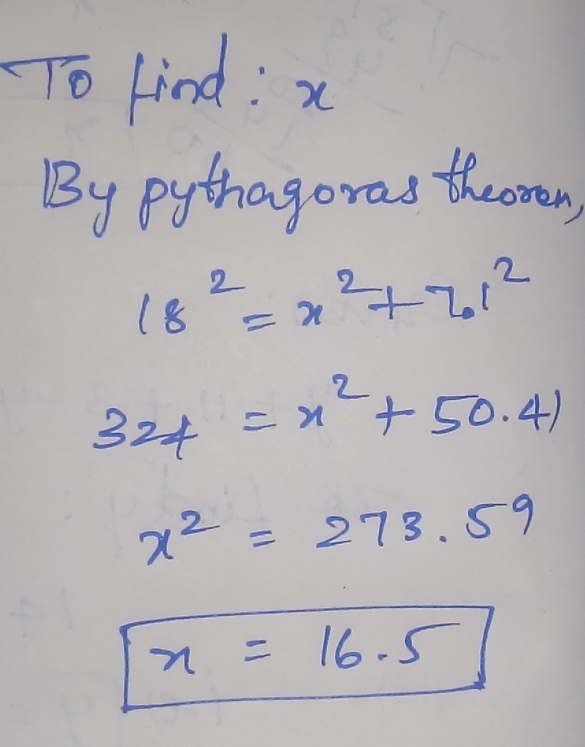 To find : x
By pythagoras theoren,
18² = x² + 7.1²
324 = x² + 50.41
x² = 273.59
x = 16.5